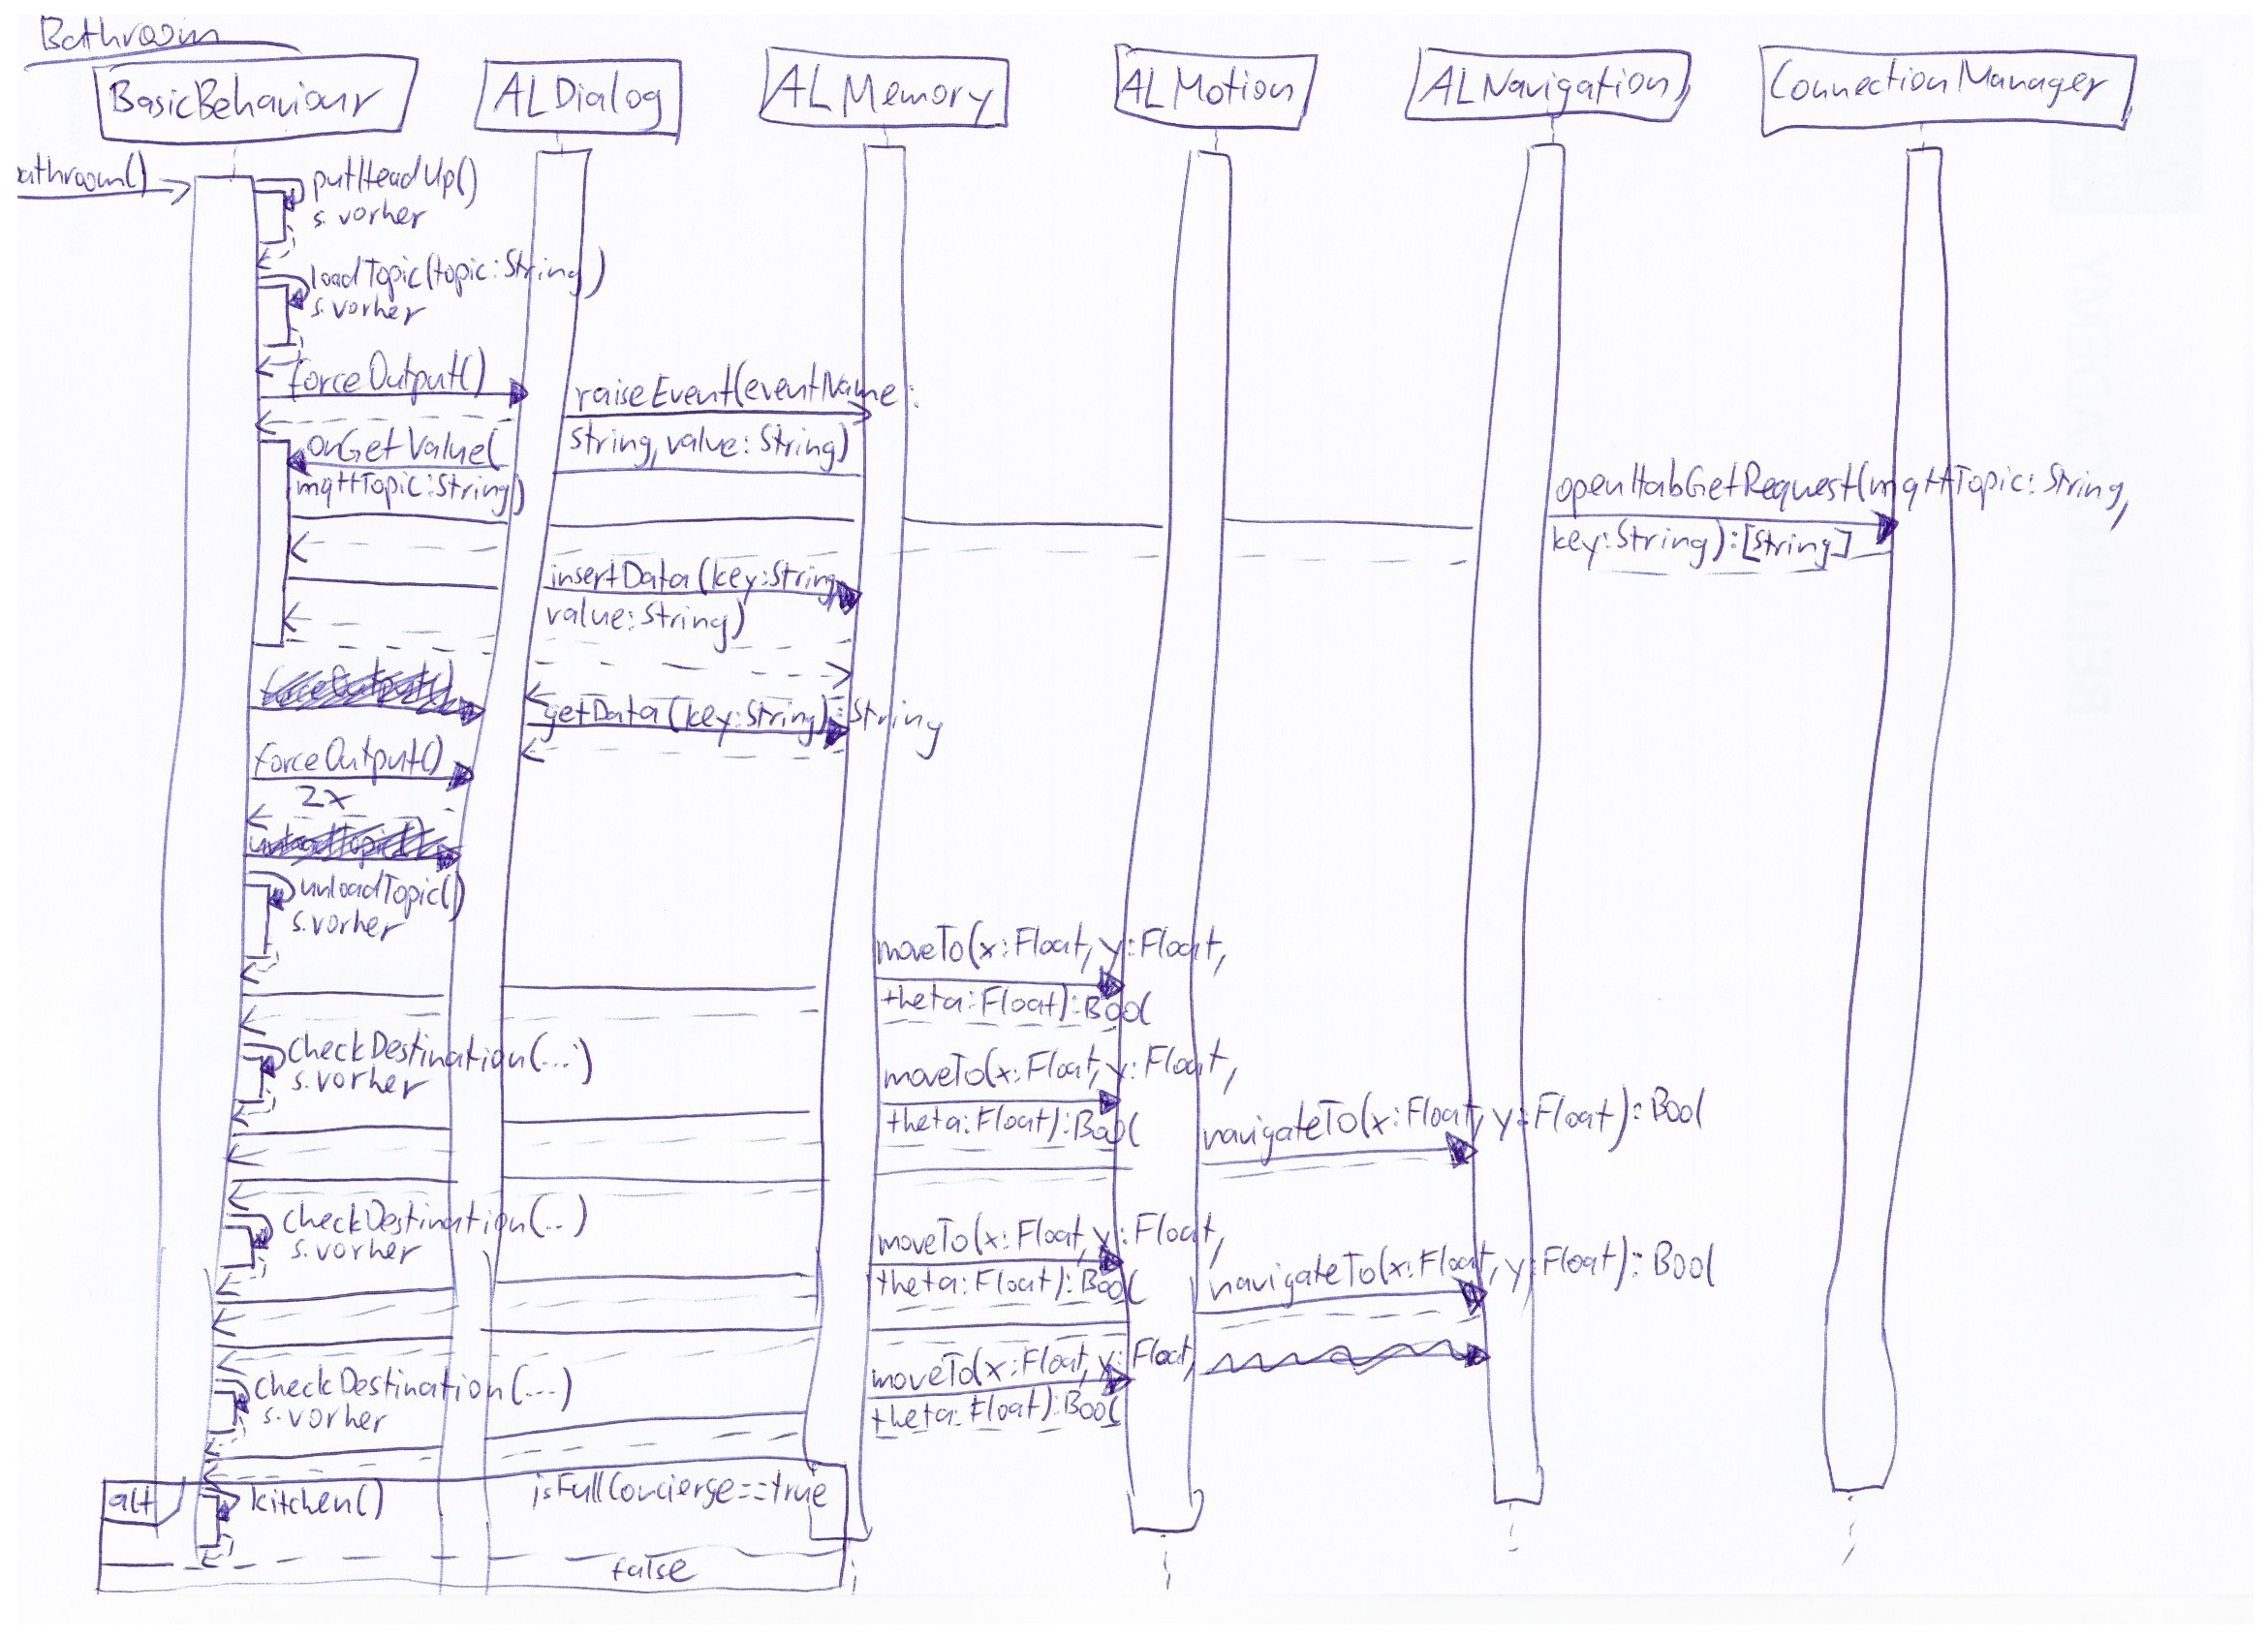 Bathroom
BasicBehaviour
ALDialog
ALMemory
ALMotion
ALNavigation
ConnectionManager
athroom()
putHeadUp()
s. vorher
loadTopic(topic:String)
s. vorher
forceOutput()
raiseEvent(eventName:
String, value: String)
onGetValue(
mqttTopic:String)
openHabGetRequest(mqttTopic: String,
key:String):[String]
insertData(key:String,
value:String)
getData(key:String):String
forceOutput()
2x
unloadTopic()
s. vorher
moveTo(x:Float, y:Float,
theta:Float):Bool
checkDestination(...)
s. vorher
moveTo(x:Float, y:Float,
theta:Float):Bool
navigateTo(x:Float, y:Float):Bool
checkDestination(...)
s. vorher
moveTo(x:Float, y:Float,
theta:Float):Bool
navigateTo(x:Float, y:Float):Bool
checkDestination(...)
s. vorher
moveTo(x:Float, y:Float,
theta:Float):Bool
alt
kitchen()
isFullConcierge==true
false